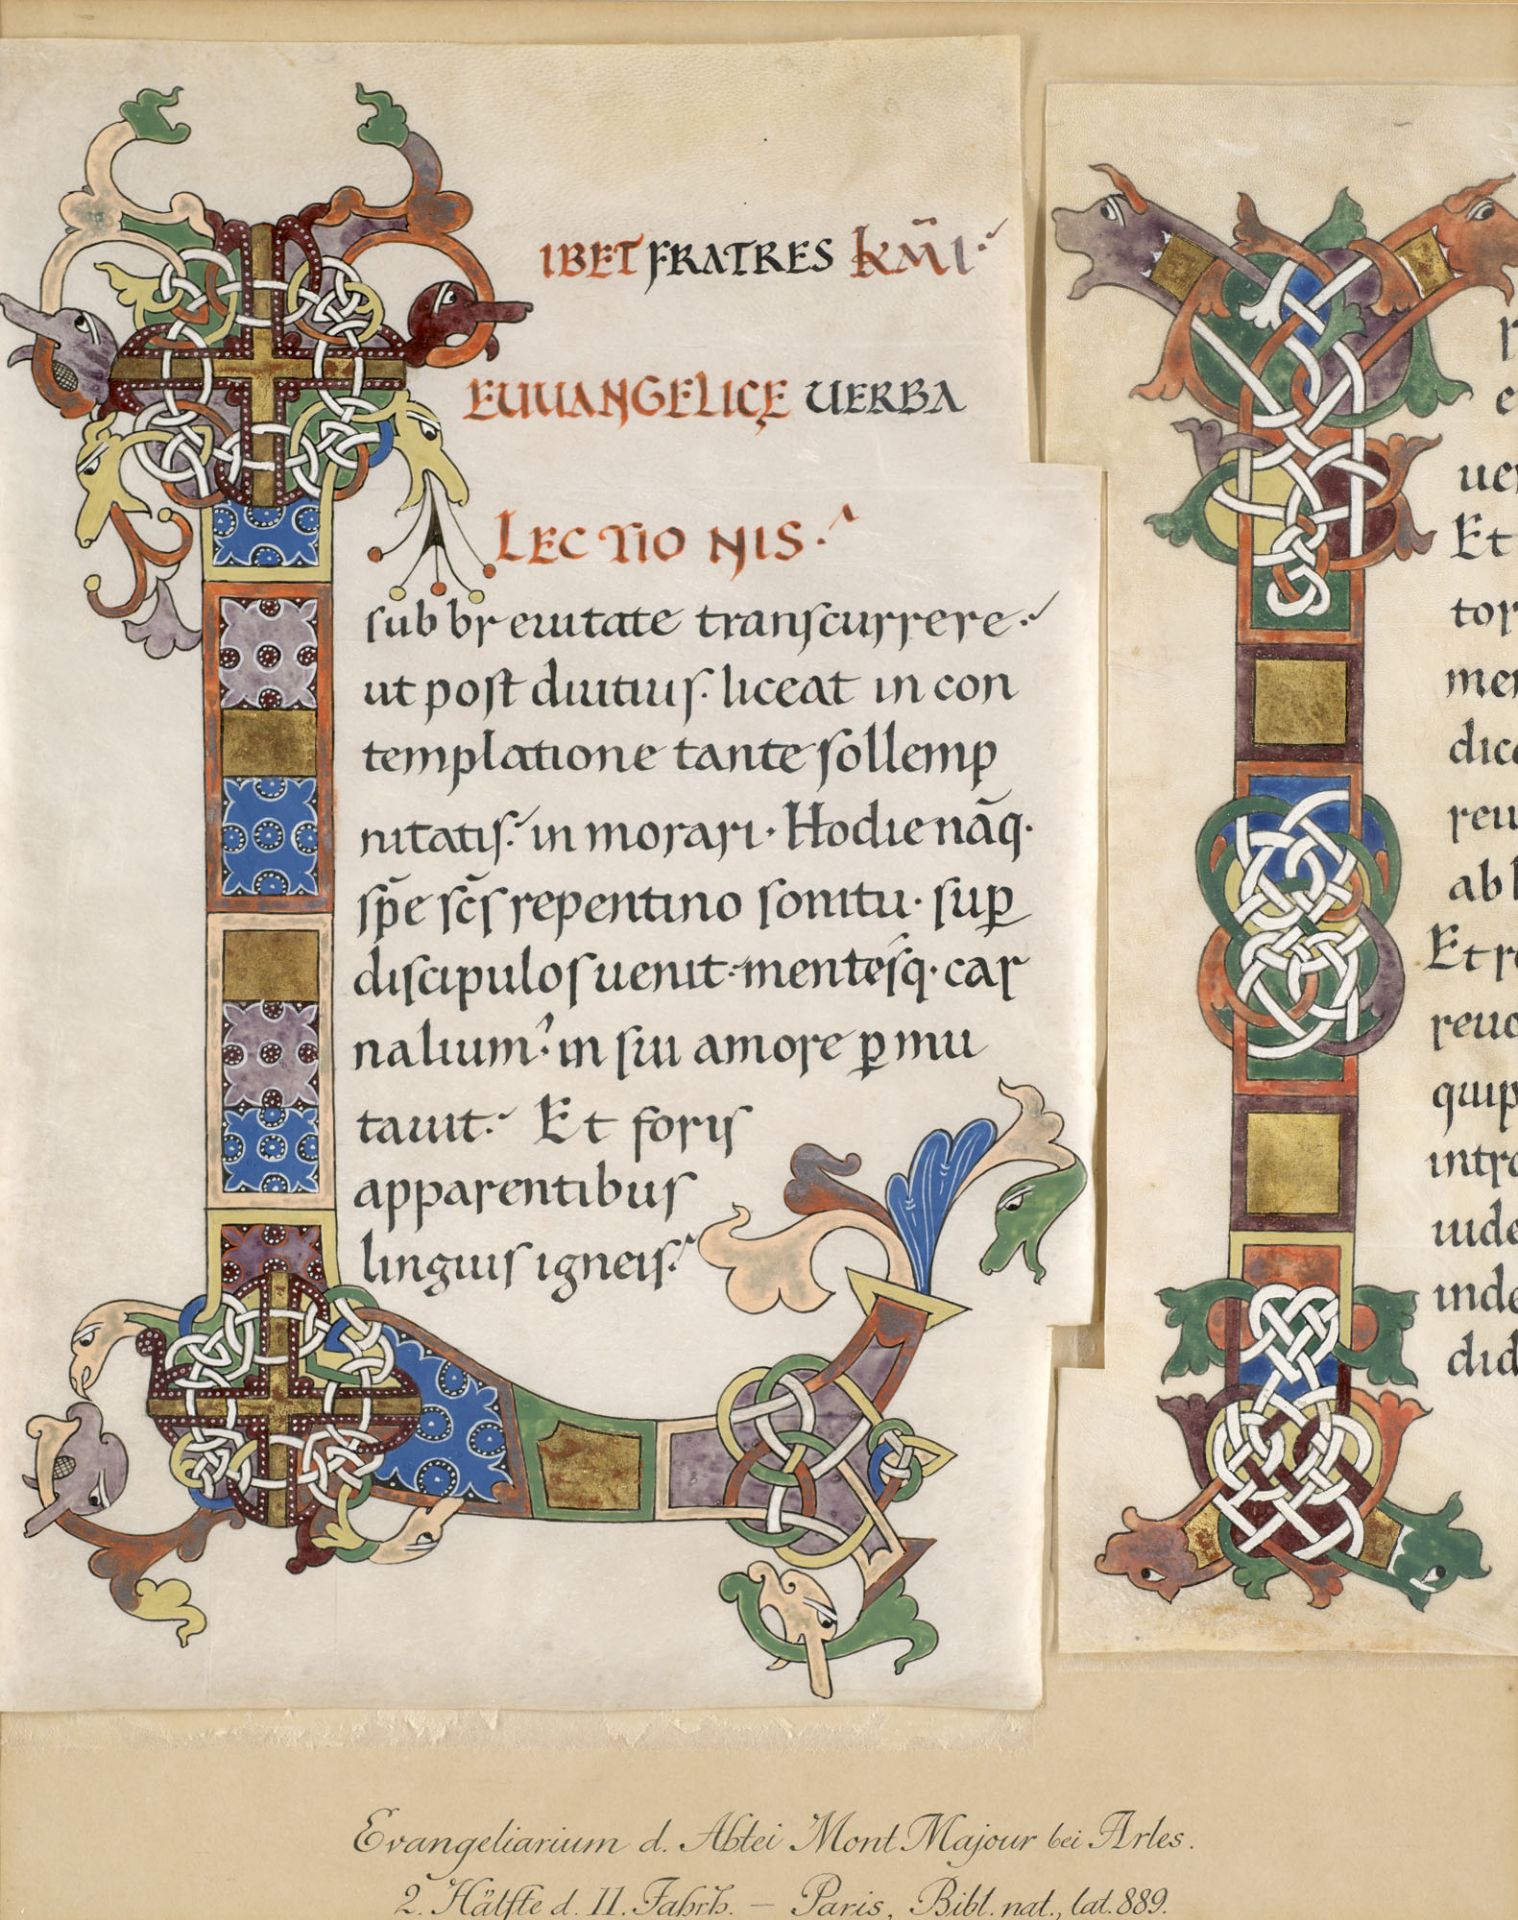 IBET FRATRES km̄i.
EUUANGELICĘ UERBA
LECTIONIS.
sub breuitate transcurrere.
ut post diutius. liceat in con
templatione tante sollemp
nitatis. in morari. Hodie nāq.
sp̄e sc̄s repentino sonitu. suꝑ
discipulos uenit. mentesq. car
nalium. in siu amore ꝑmu
tauit. Et foris
apparentibus
linguis igneis.
r
e
uer
Et
tor
men
dica
reu
ab l
Et re
reuo
quip
intra
uide
inde
did
Evangeliarium d. Abtei Mont Majour bei Arles.
2. Hälfte d. 11. Jahrh. — Paris, Bibl. nat., lat. 889.